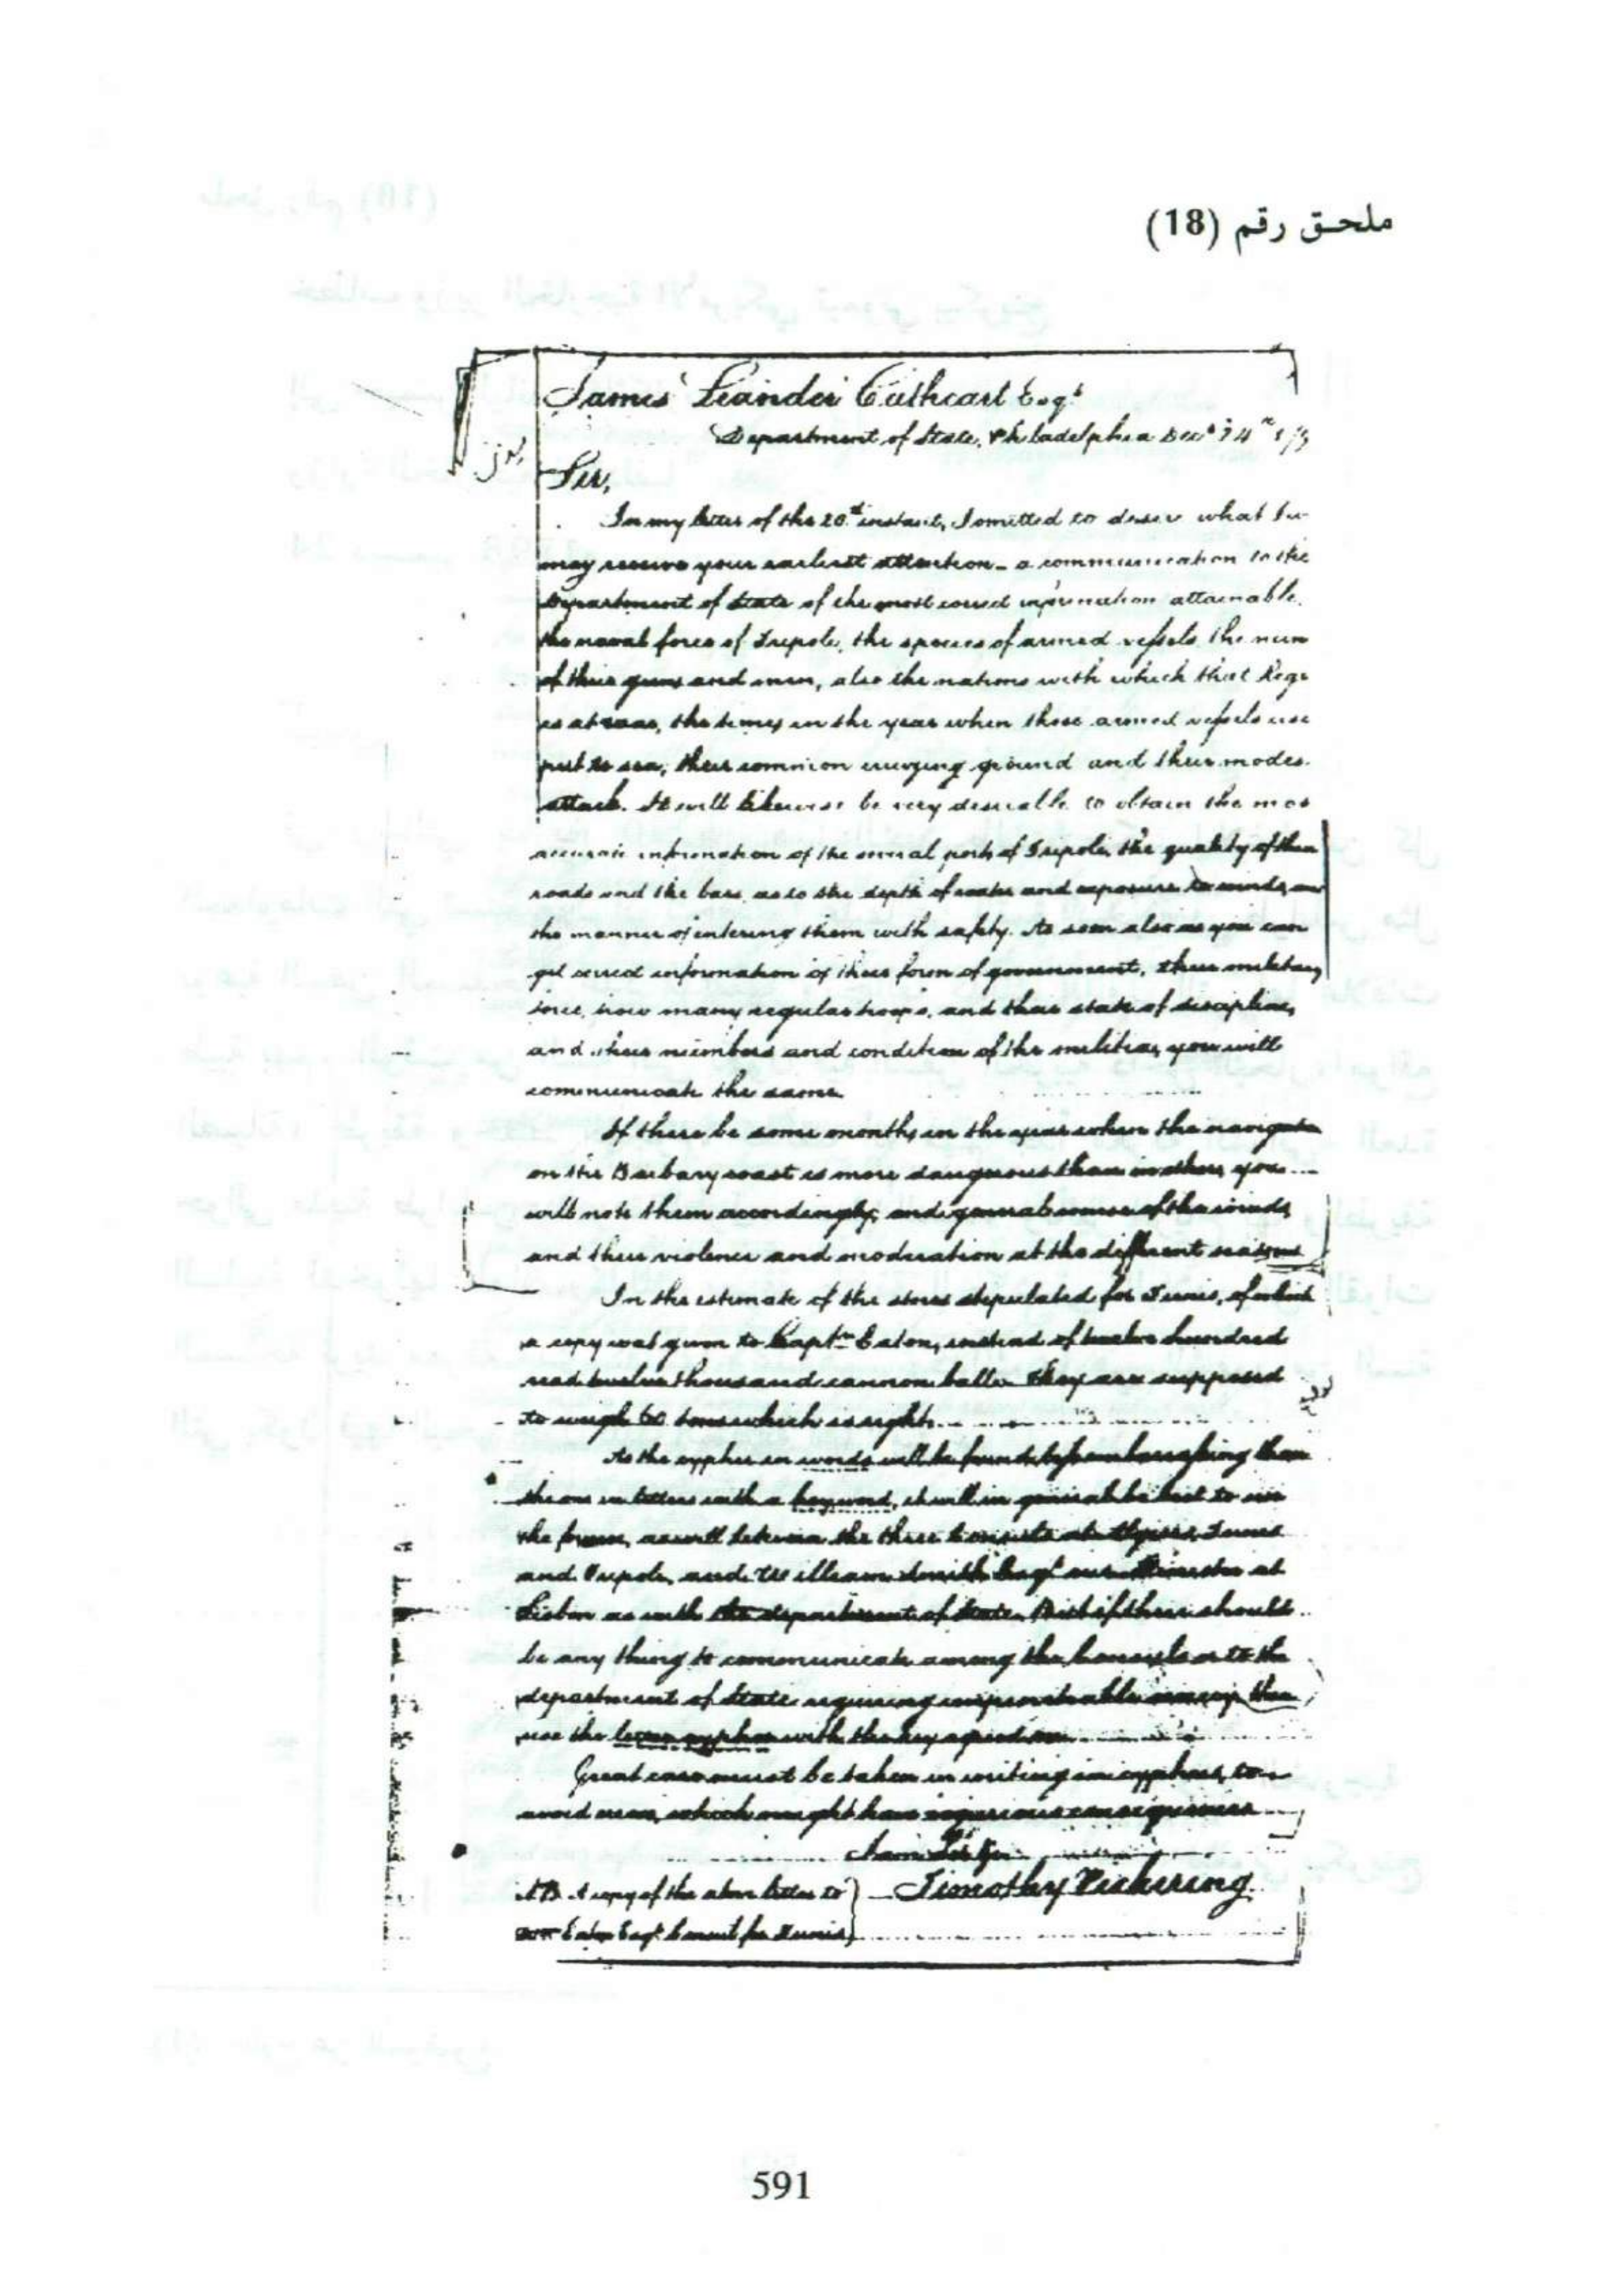 ملحق رقم (18)
James Leander Cathcart Esqr
Department of State, Philadelphia Decr 24th
Sir,
In my letter of the 20th instant, I omitted to desire what
may receive your earliest attention - a communication to the
Department of State of the most correct information attainable
the naval force of Tripoli, the species of armed vessels the num
of their guns and men, also the nations with which that Rege
is at war, the times in the year when those armed vessels use
put to sea, their common cruizing ground and their modes
attack. It will likewise be very desirable to obtain the mos
accurate information of the several ports of Tripoli, the quality of their
roads and the bars as to the depth of water and exposure to winds, an
the manner of entering them with safety. As soon also as you can
get correct information of their form of government, their military
force, how many regular troops, and their state of discipline,
and their numbers and condition of the militia, you will
communicate the same
If there be some months in the year when the navigat
on the Barbary coast is more dangerous than in others, you
will note them accordingly, and general course of the winds
and their violence and moderation at the different seasons
In the estimate of the stores stipulated for Tunis, of which
a copy was given to Captn Eaton, instead of twelve hundred
read twelve thousand cannon balls. They are supposed
to weigh 60 tons which is right.
As the cypher in words will be found less embarrassing than
the one in letters with a key word, it will in general be best to use
the former, as well between the three Consuls at Algiers, Tunis
and Tripoli, and William Smith Esqr our Minister at
Lisbon as with the department of State. But if there should
be any thing to communicate among the Consuls or to the
department of State requiring impenetrable secrecy then
use the letter cypher with the key agreed on
Great care must be taken in writing in cyphers, to
avoid errors, which might have injurious consequences
I am Sir &c
Timothy Pickering
NB A copy of the above letter to
Eaton Esqr Consul for Tunis
591